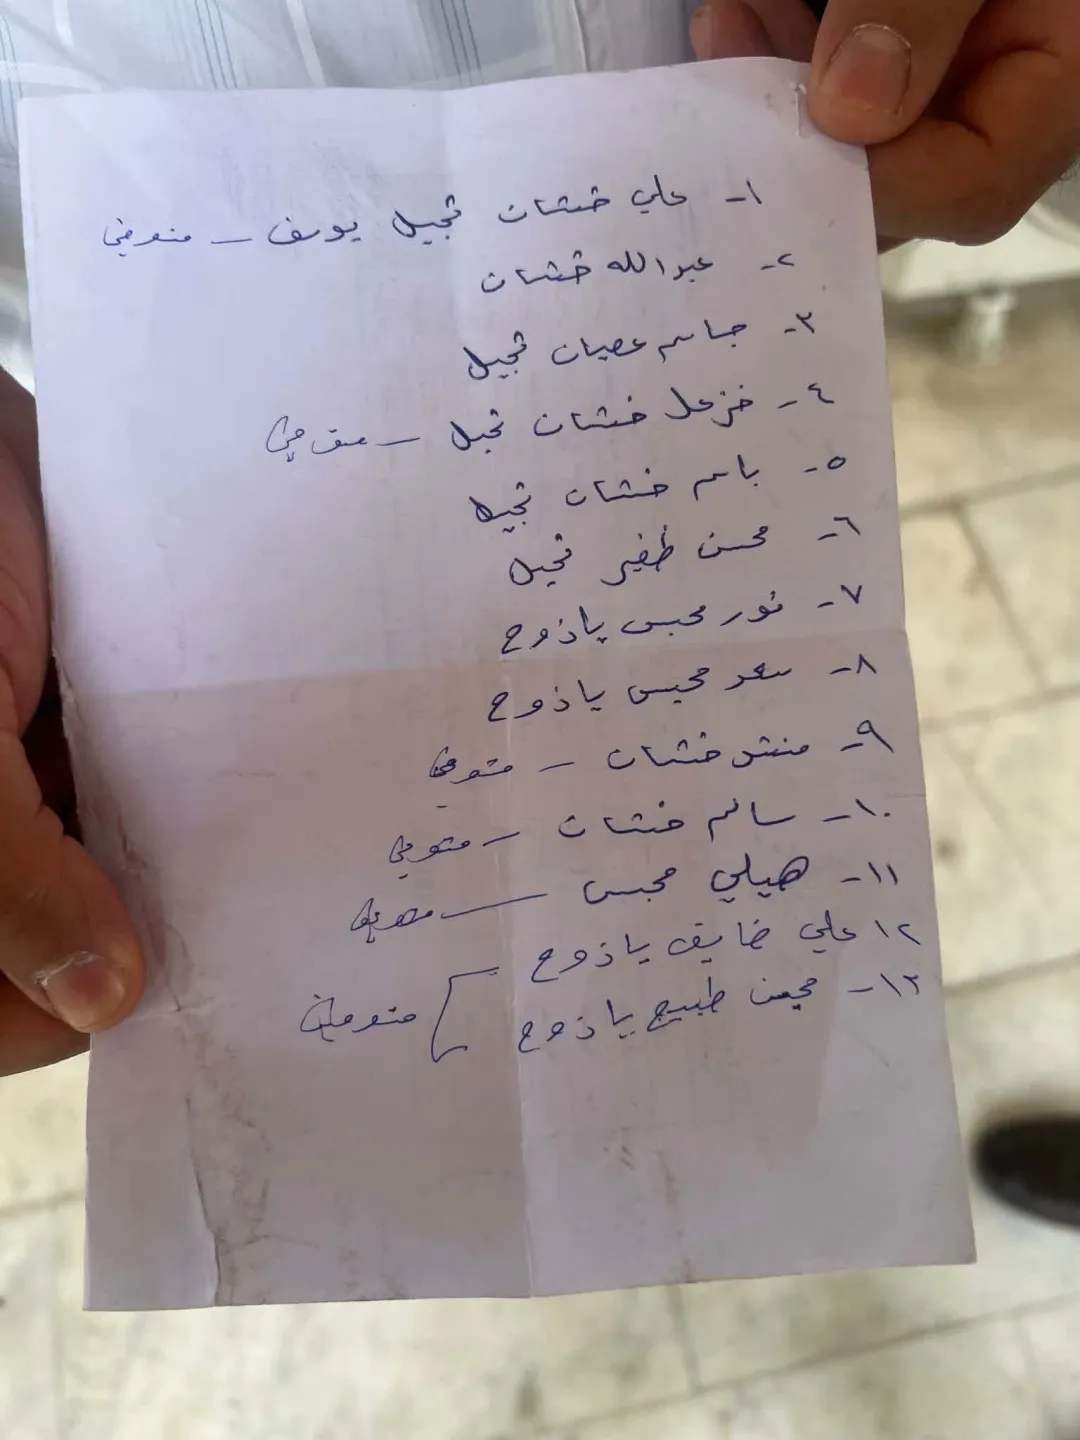 ١- علي خشان تجيل يوسف - متوفي
٢- عبدالله خشان
٣- جاسم عصيان تجيل
٤- خزعل خشان تجيل - متوفي
٥- باسم خشان تجيل
٦- محسن ظفير تجيل
٧- نور محيبس ياذوح
٨- سعد محيبس ياذوح
٩- منشد خشان - متوفي
١٠- سالم خشان - متوفي
١١- هيلي محيبس - متوفي
١٢ علي ضايف ياذوح
١٣- محيسن طبيج ياذوح
متوفين